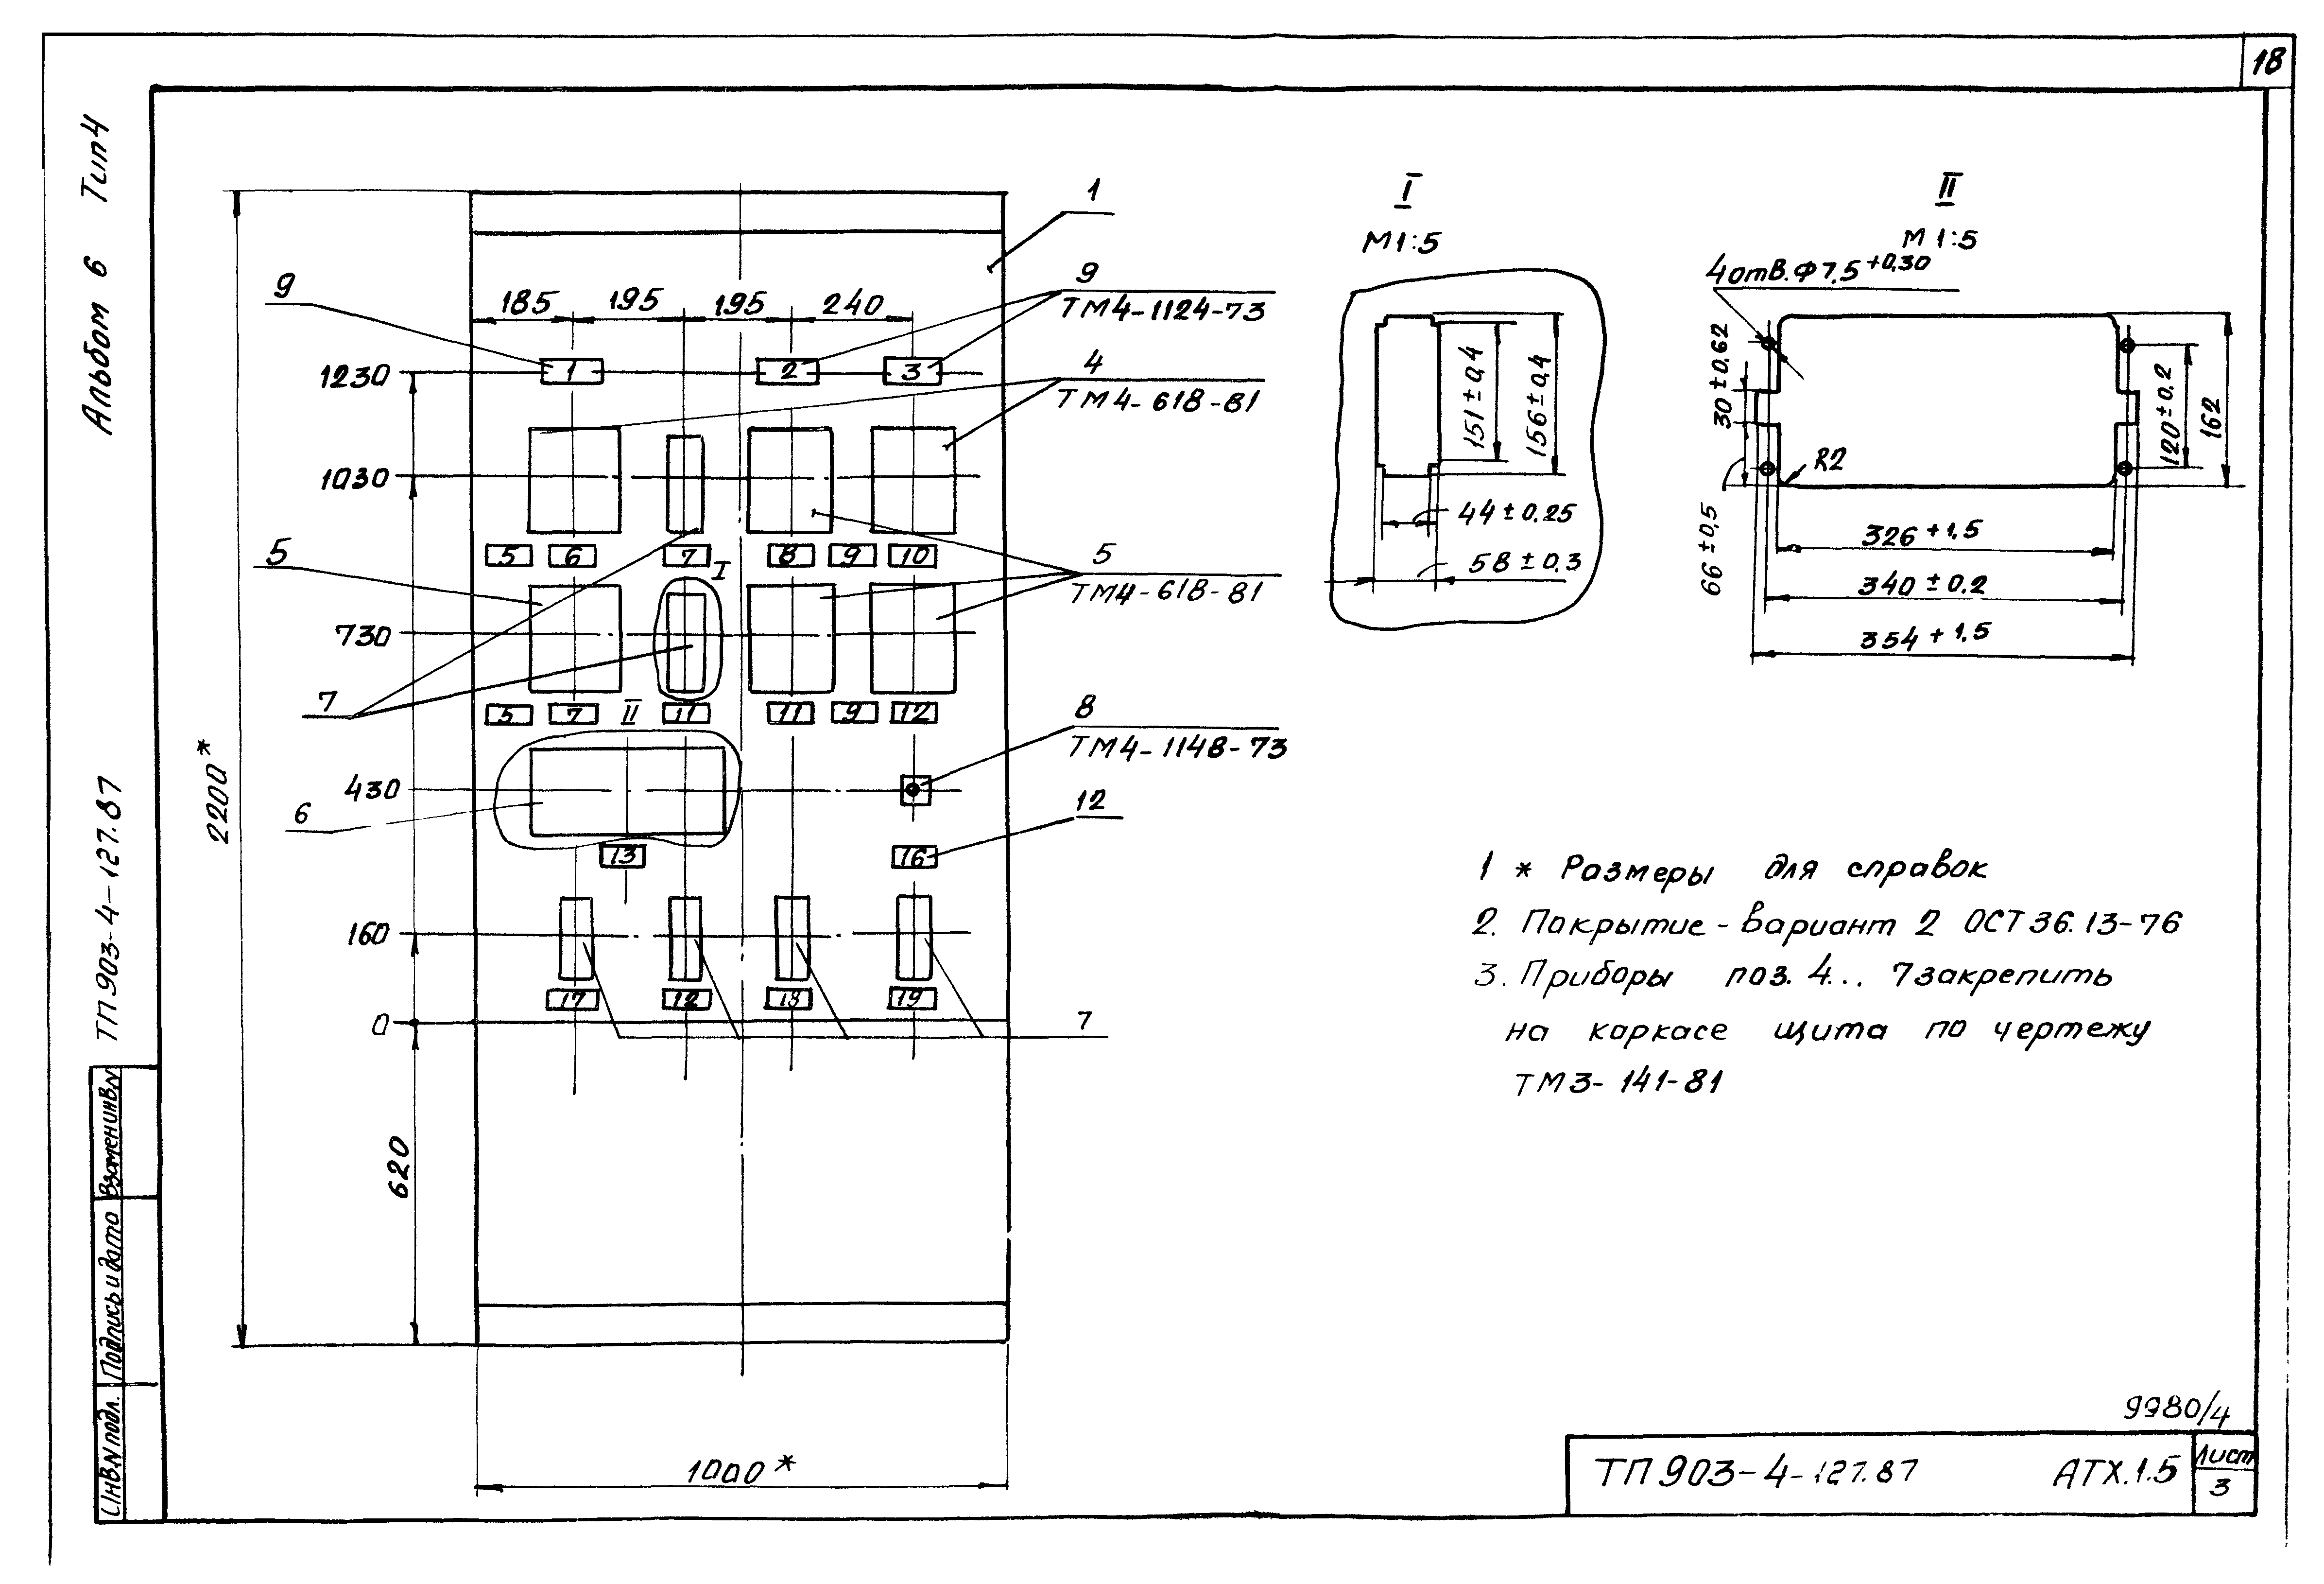 18
Альбом 6 Тип 4
ТП 903-4-127.87
Взамен инв.N
Подпись и дата
Инв.N подл.
1
9
185 195 195 240
9
ТМ4-1124-73
1230
1 2 3
4
ТМ4-618-81
1030
5 6 7 8 9 10
I
5
5
ТМ4-618-81
730
7
5 7 II 11 11 9 12
8
ТМ4-1148-73
430
6
12
13 16
160
17 12 18 19
0
7
2200*
620
1000*
I
М1:5
151±0,4
156±0,4
44±0.25
58±0,3
II
М1:5
4отв.Ф7,5+0,30
30±0,62
66±0,5
R2
120±0.2
162
326+1,5
340±0.2
354+1,5
1 * Размеры для справок
2. Покрытие - Вариант 2 ОСТ36.13-76
3. Приборы поз. 4... 7 закрепить
на каркасе щита по чертежу
ТМ3-141-81
9980/4
ТП 903-4-127.87 АТХ.1.5
Лист
3